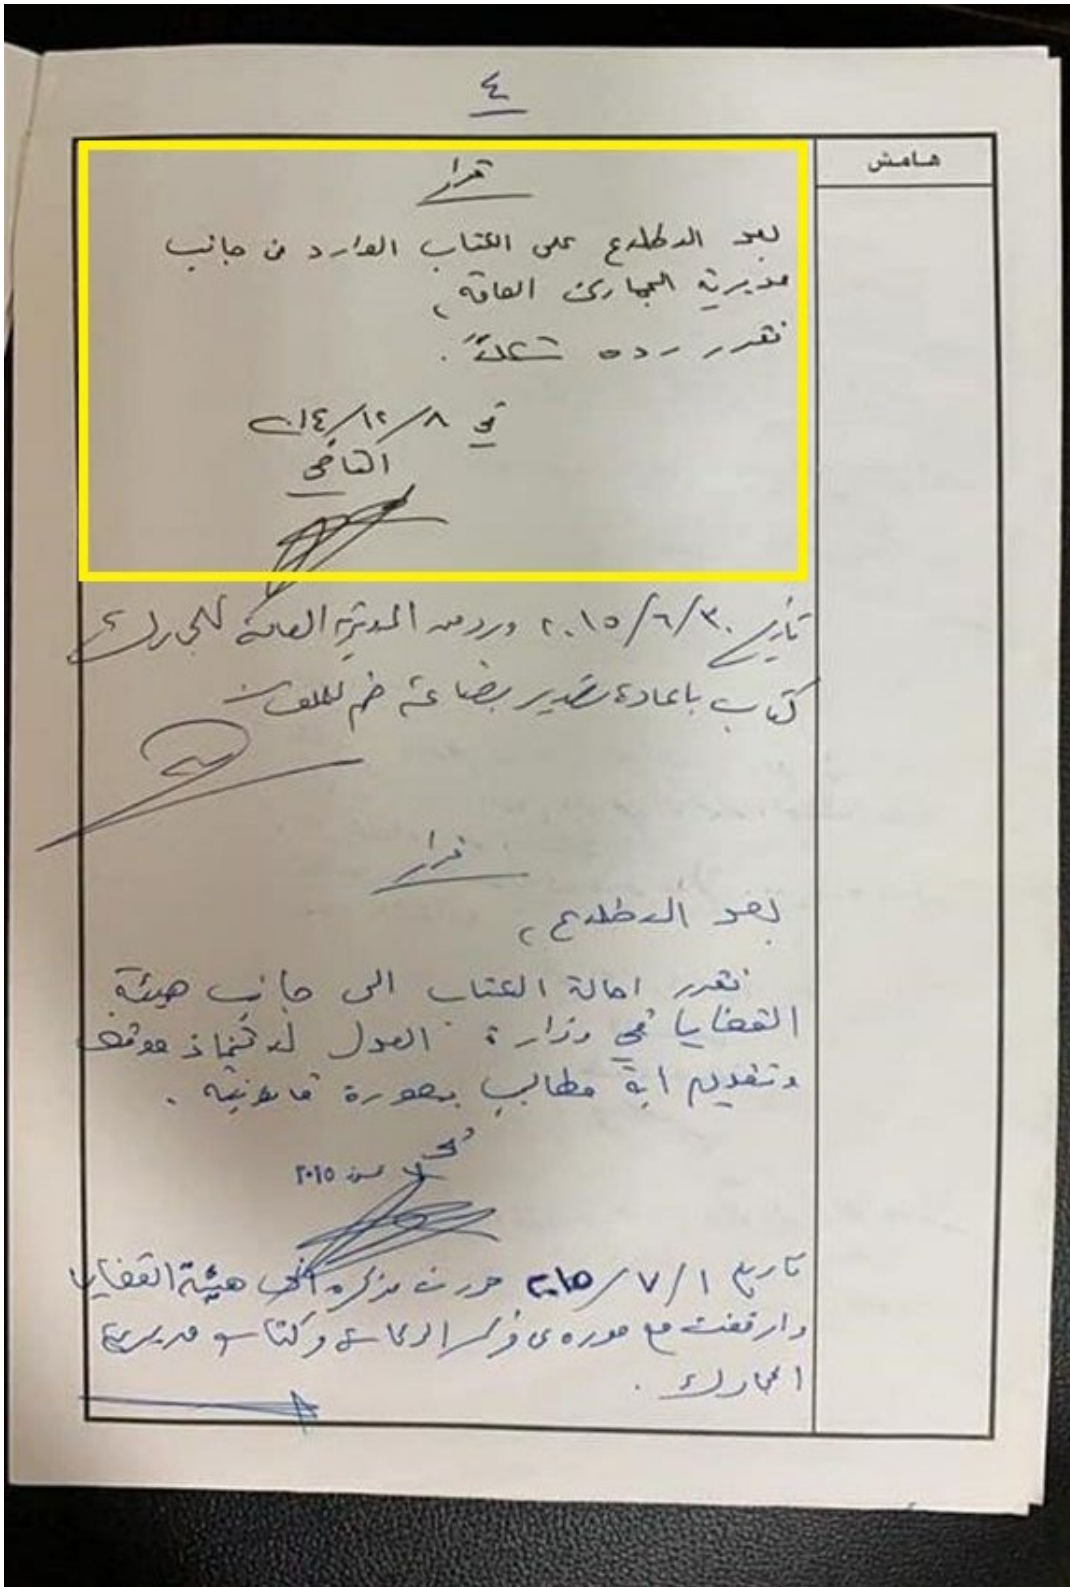 ٤
هامش
قرار
بعد الاطلاع على الكتاب الوارد من جانب
مديرية الجمارك العامة،
نقرر رده شكلاً.
في ٨/١٢/٢٠١٤
القاضي
تاريخ ٣٠/٦/٢٠١٥ ورد من المديرية العامة للجمارك
كتاب باعادة تصدير بضاعة ضم للملف
قرار
بعد الاطلاع،
نقرر احالة الكتاب الى جانب هيئة
القضايا في وزارة العدل لاتخاذ موقف
وتقديم اية مطالب بصورة قانونية.
تموز ٢٠١٥
تاريخ ١/٧/٢٠١٥ حررت مذكرة الى هيئة القضايا
وارفقت مع صورة عن وكتاب مديرية
الجمارك.